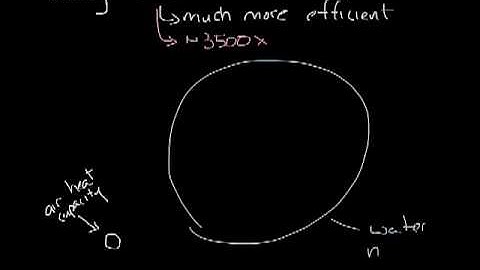 much more efficient
~3500x
air heat
capacity
water
n